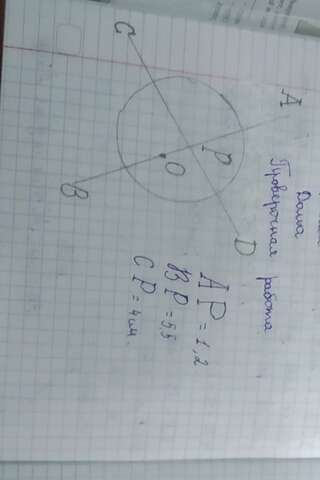 Дата
Проверочная работа
A
C
P
O
B
D
AP = 1,2
BP = 5,5
CP = 4 см